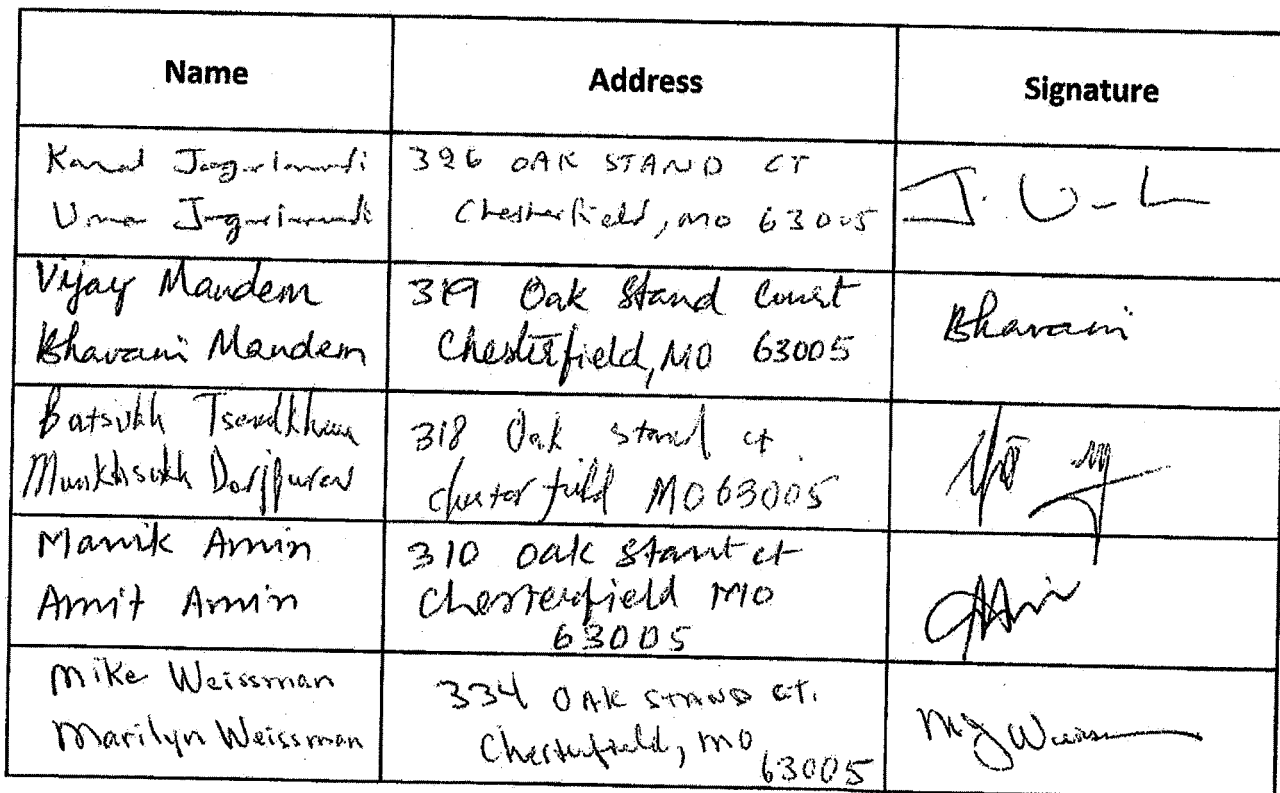 Name
Address
Signature
Jagarlamudi
Uma Jagarlamudi
326 OAK STAND CT
Chesterfield, MO 63005
J. U
Vijay Mandem
Bhavani Mandem
319 Oak Stand Court
Chesterfield, MO 63005
Bhavani
Batsukh
Munkhsukh Dorjpurev
318 Oak stand ct.
chesterfield MO 63005
Manik Amin
Amit Amin
310 Oak Stant ct
Chesterfield MO
63005
Mike Weissman
Marilyn Weissman
334 OAK STAND CT.
Chesterfield, MO
63005
MJ Weissman